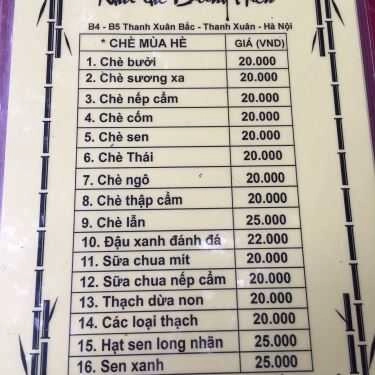 B4 - B5 Thanh Xuân Bắc - Thanh Xuân - Hà Nội
* CHÈ MÙA HÈ GIÁ (VND)
1. Chè bưởi 20.000
2. Chè sương xa 20.000
3. Chè nếp cẩm 20.000
4. Chè cốm 20.000
5. Chè sen 20.000
6. Chè Thái 20.000
7. Chè ngô 20.000
8. Chè thập cẩm 20.000
9. Chè lẫn 25.000
10. Đậu xanh đánh đá 22.000
11. Sữa chua mít 20.000
12. Sữa chua nếp cẩm 20.000
13. Thạch dừa non 20.000
14. Các loại thạch 20.000
15. Hạt sen long nhãn 25.000
16. Sen xanh 25.000